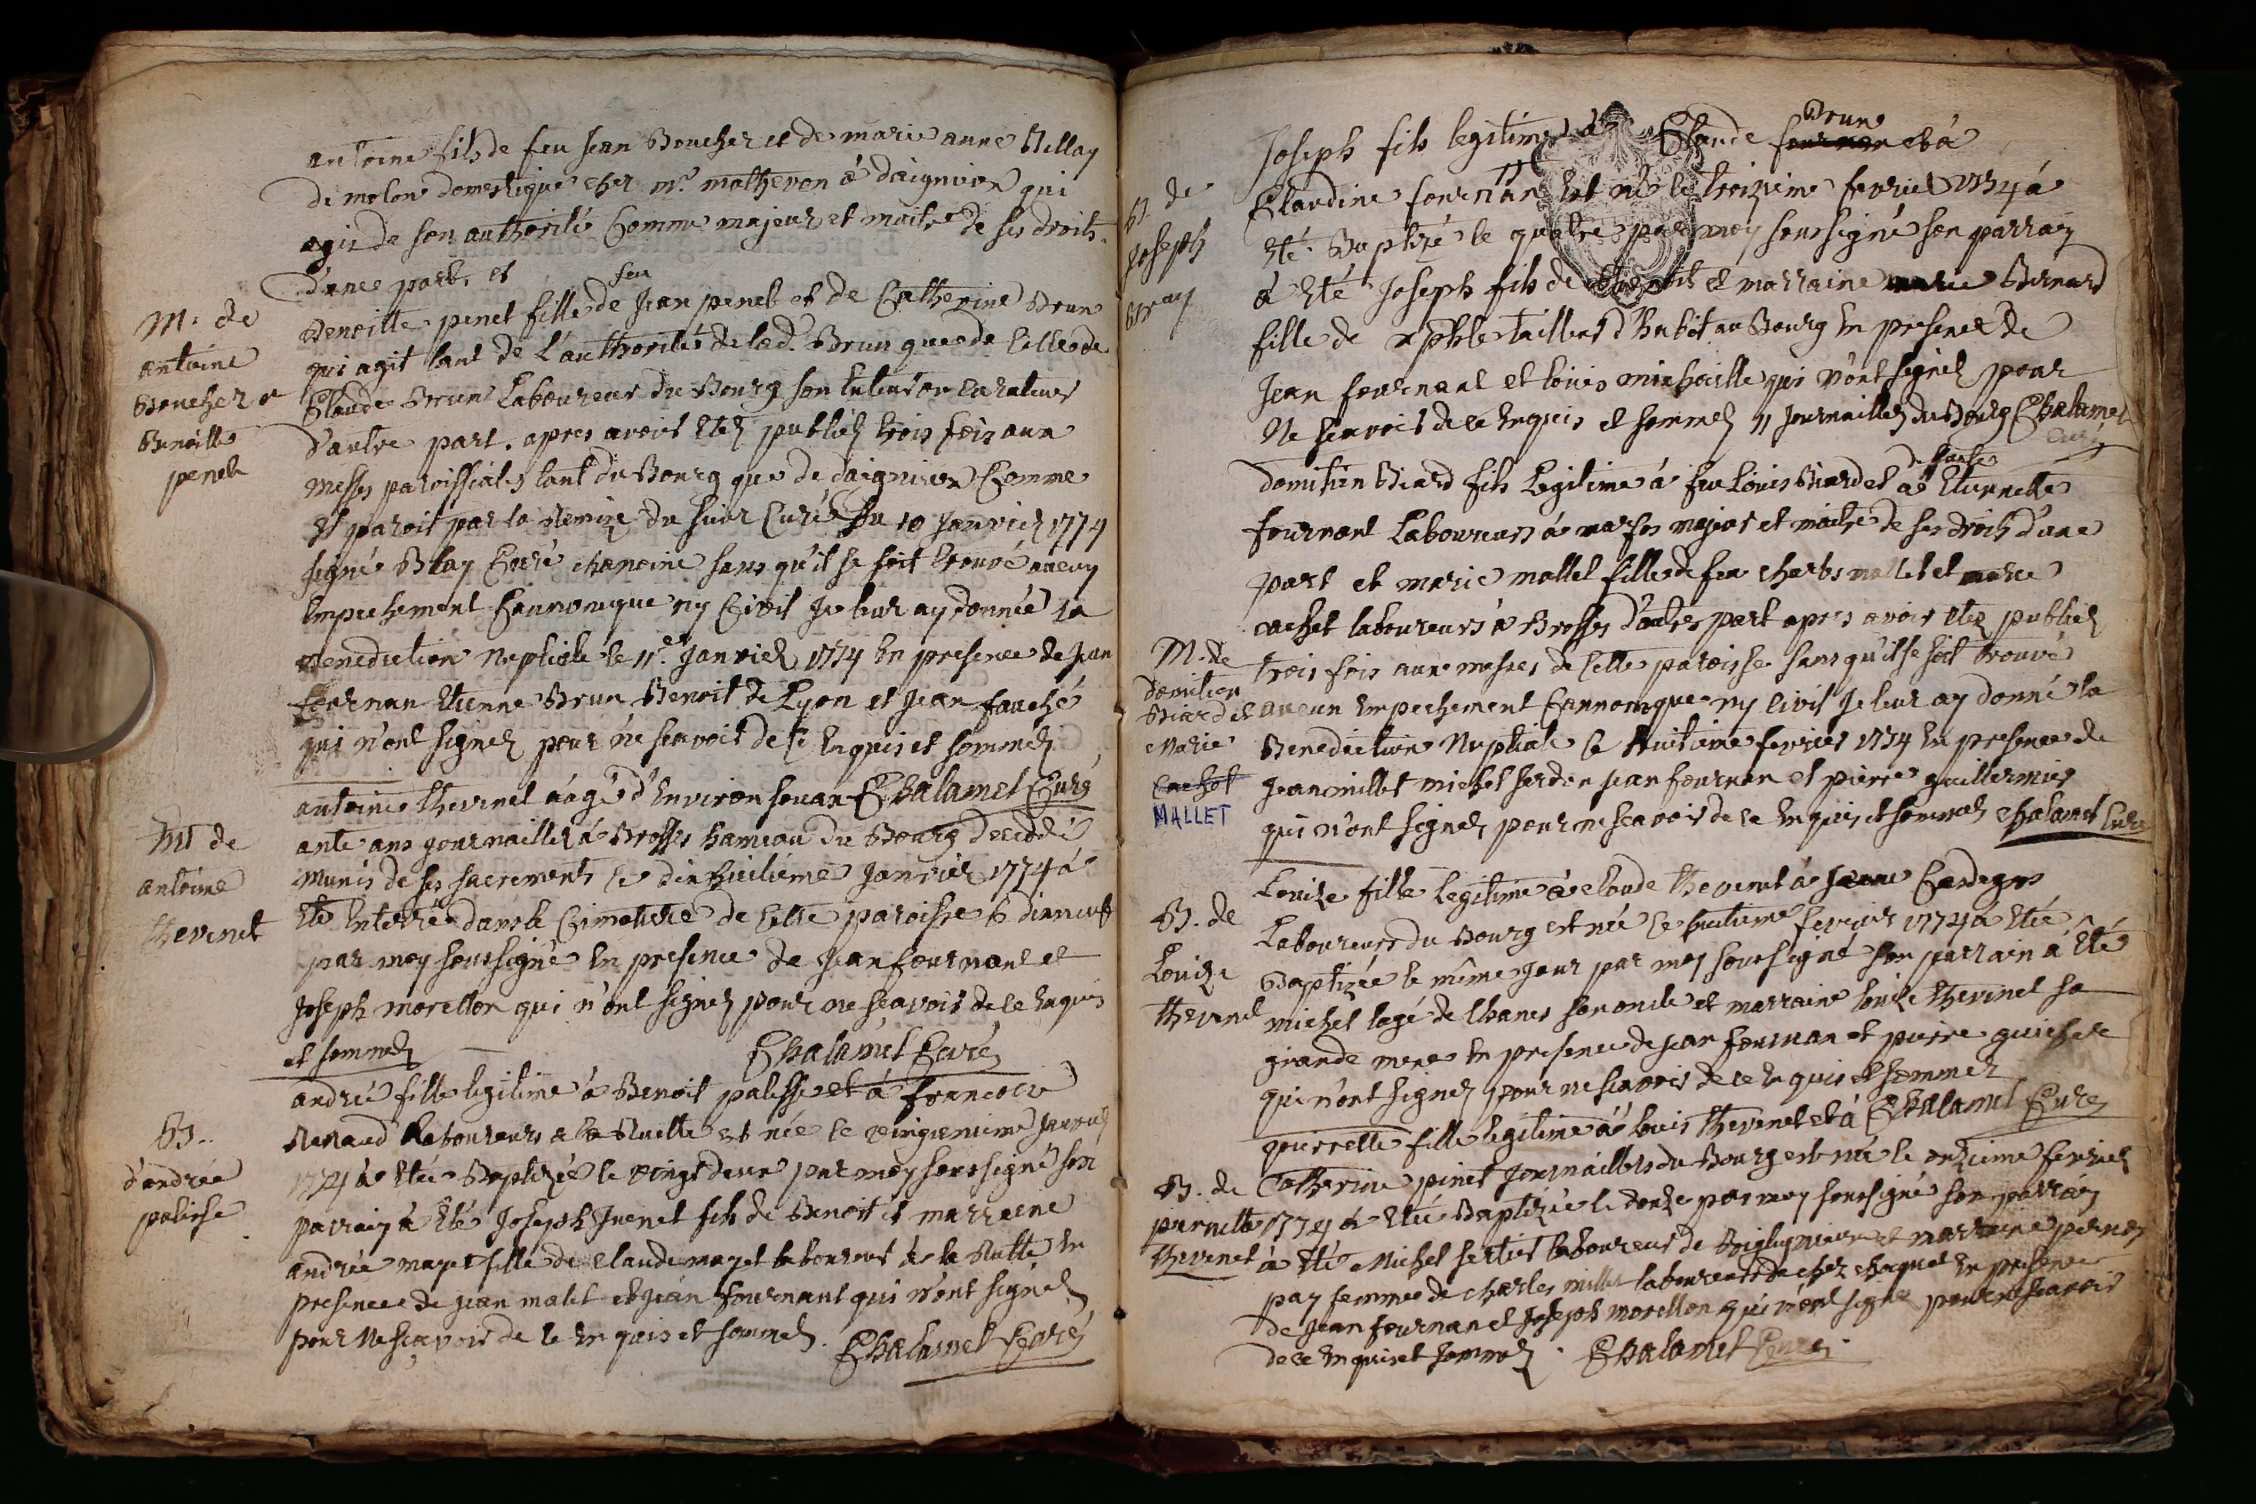 antoine fils de feu jean Boucher et de marie anne Billay
de molon domestique chez mr. matheron à daignieon qui
agit de son authorité Comme majeur et maitre de ses droits.
d'une part, et
M. de
antoine
Boucher et
Benoitte
penet
feu
Benoitte penet fille de Jean penet et de Catherine Brun
qui agit tant de l'authorité de lad. Brun que de celle de
Claude Brun Laboureur du Bourg son tuteur ou curateur
d'autre part. apres avoir étéz publiéz trois fois aux
messes paroissiales tant du Bourg que de daignieon Comme
il paroit par la Remize du sieur Curé du 10 Janvier 1774
signé Blay Curé chanoine sans qu'il se soit trouvé aucun
Empechement Cannonique ny Civil Je leur ay donnée la
Benediction Nuptiale le 11e. Janvier 1774 En presence de Jean
fournan Etienne Brun Benoit de Lyon et Jean fauché
qui n'ont signéz pour ne scavoir de ce Enquis et sommés
Mt de
antoine
thevenet
antoine thevenet aagé d'Environ souax Chalamel Curé
ante ans journaillez à Brosses hameau du Bourg decedé
munis de ses sacrements le dix huitiéme Janvier 1774 a
Eté Enterré dans le Cimetiere de cette paroisse le dixneuf
par moy soussigné En presence de Jean fournant et
Joseph morellon qui n'ont signéz pour ne scavoir de ce Enquis
et sommés
Chalamel Curé
B.
d'andrée
palisse
andrée fille legitime à Benoit palisse et à francoise
Renaud Laboureurs a la Ruette est née le vingt unieme Janvier
1774 à Etée Baptizée le vingt deux par moy soussigné son
parrain à Eté Joseph Juenet fils de Benoit et marraine
andrée mayet fille de claude mayet laboureur de la Rutte En
presence de Jean malet et Jean fournant qui n'ont signéz
pour ne scavoir de ce Enquis et sommés. Chalamel Curé
B. de
Joseph
Bray
Brun
Joseph fils legitime à Claude fournan et à
Claudine fournan Est né le troizieme fevrier 1774 à
Eté Baptizé le quatre par moy soussigné son parrain
à Eté Joseph fils de et marraine marie Bernard
fille de tailleur d'habit au Bourg En presence de
Jean fournant et louis michaille qui n'ont signéz pour
Ne scavoir de ce Enquis et sommés 11 journaillez du Bourg Chalamel
Curé
M. de
domitien
Biard et
Marie
Cachet
MALLET
domitien Biard fils Legitime à feu Louis Biard et à Eturnette
fournant Laboureurs à marfos majeur et maitre de ses droits d'une
part et marie mallet fille de feu charles mallet et marie
cachet laboureurs à Brosses d'autre part apres avoir etéz publiéz
trois fois aux messes de cette paroisse sans qu'il se soit trouvé
aucun Empechement Cannonique ny civil Je leur ay donné la
Benediction Nuptiale le huitieme fevrier 1774 En presence de
Jean millet michel jardon jean fournan et pierre guillermier
qui n'ont signéz pour ne scavoir de ce Enquis et sommés Chalamel Curé
B. de
Louize
thevenet
Louize fille legitime à claude thevenet à Jeanne Cardegros
Laboureurs du Bourg est née le huitieme fevrier 1774 à Etée
Baptizée le même jour par moy soussigné son parrain à Eté
michel lagé de Chanes son oncle et marraine louize thevenet sa
grande mere En presence de jean fournan et pierre guichele
qui n'ont signéz pour ne scavoir de ce Enquis et sommés
Chalamel Curé
B. de
purnette
thevenet
pierrette fille legitime à louis thevenet et à
Catherine pinet journaillers du Bourg est née le onzieme fevrier
1774 à Etée Baptizée le douze par moy soussigné son parrain
à Eté Michel sertier laboureur de et marraine pernette
pay femme de charles millet laboureurs de chez choquet En presence
de Jean fournan et Joseph morellon qui n'ont signé pour ne scavoir
de ce Enquis et sommés. Chalamel Curé.